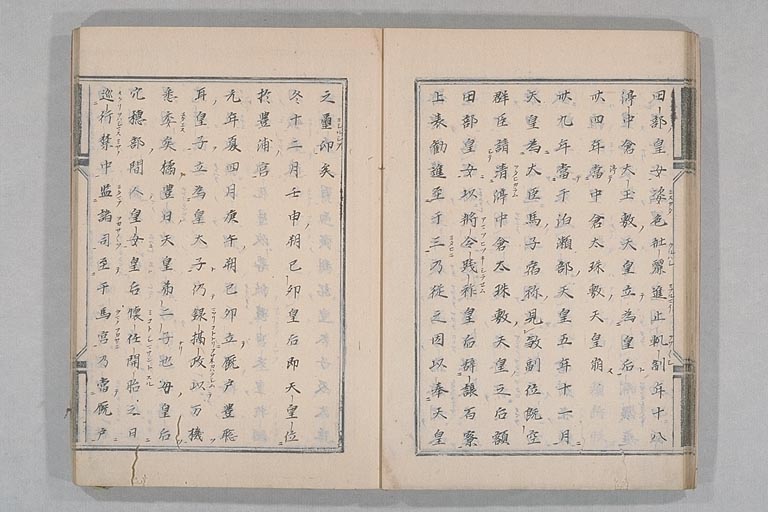 田部皇女姿色端麗進止軌制年十八
渟中倉太玉敷天皇立為皇后
卅四年當中倉太珠敷天皇崩
卅九年當于泊瀬部天皇五年十一月
天皇為大臣馬子宿祢見殺嗣位既空
群臣請渟中倉太珠敷天皇之后額
田部皇女以將令践祚皇后辭讓百寮
上表勸進至于三乃従之因以奉天皇
之璽印矣
冬十二月壬申朔己卯皇后即天皇位
於豊浦宮
元年夏四月庚午朔己卯立厩戸豊聡
耳皇子立為皇太子仍録攝政以万機
悉委矣橘豊日天皇第二子也母皇后
穴穂部間人皇女皇后懐妊開胎之日
巡行禁中監諸司至于馬宮乃當厩戸